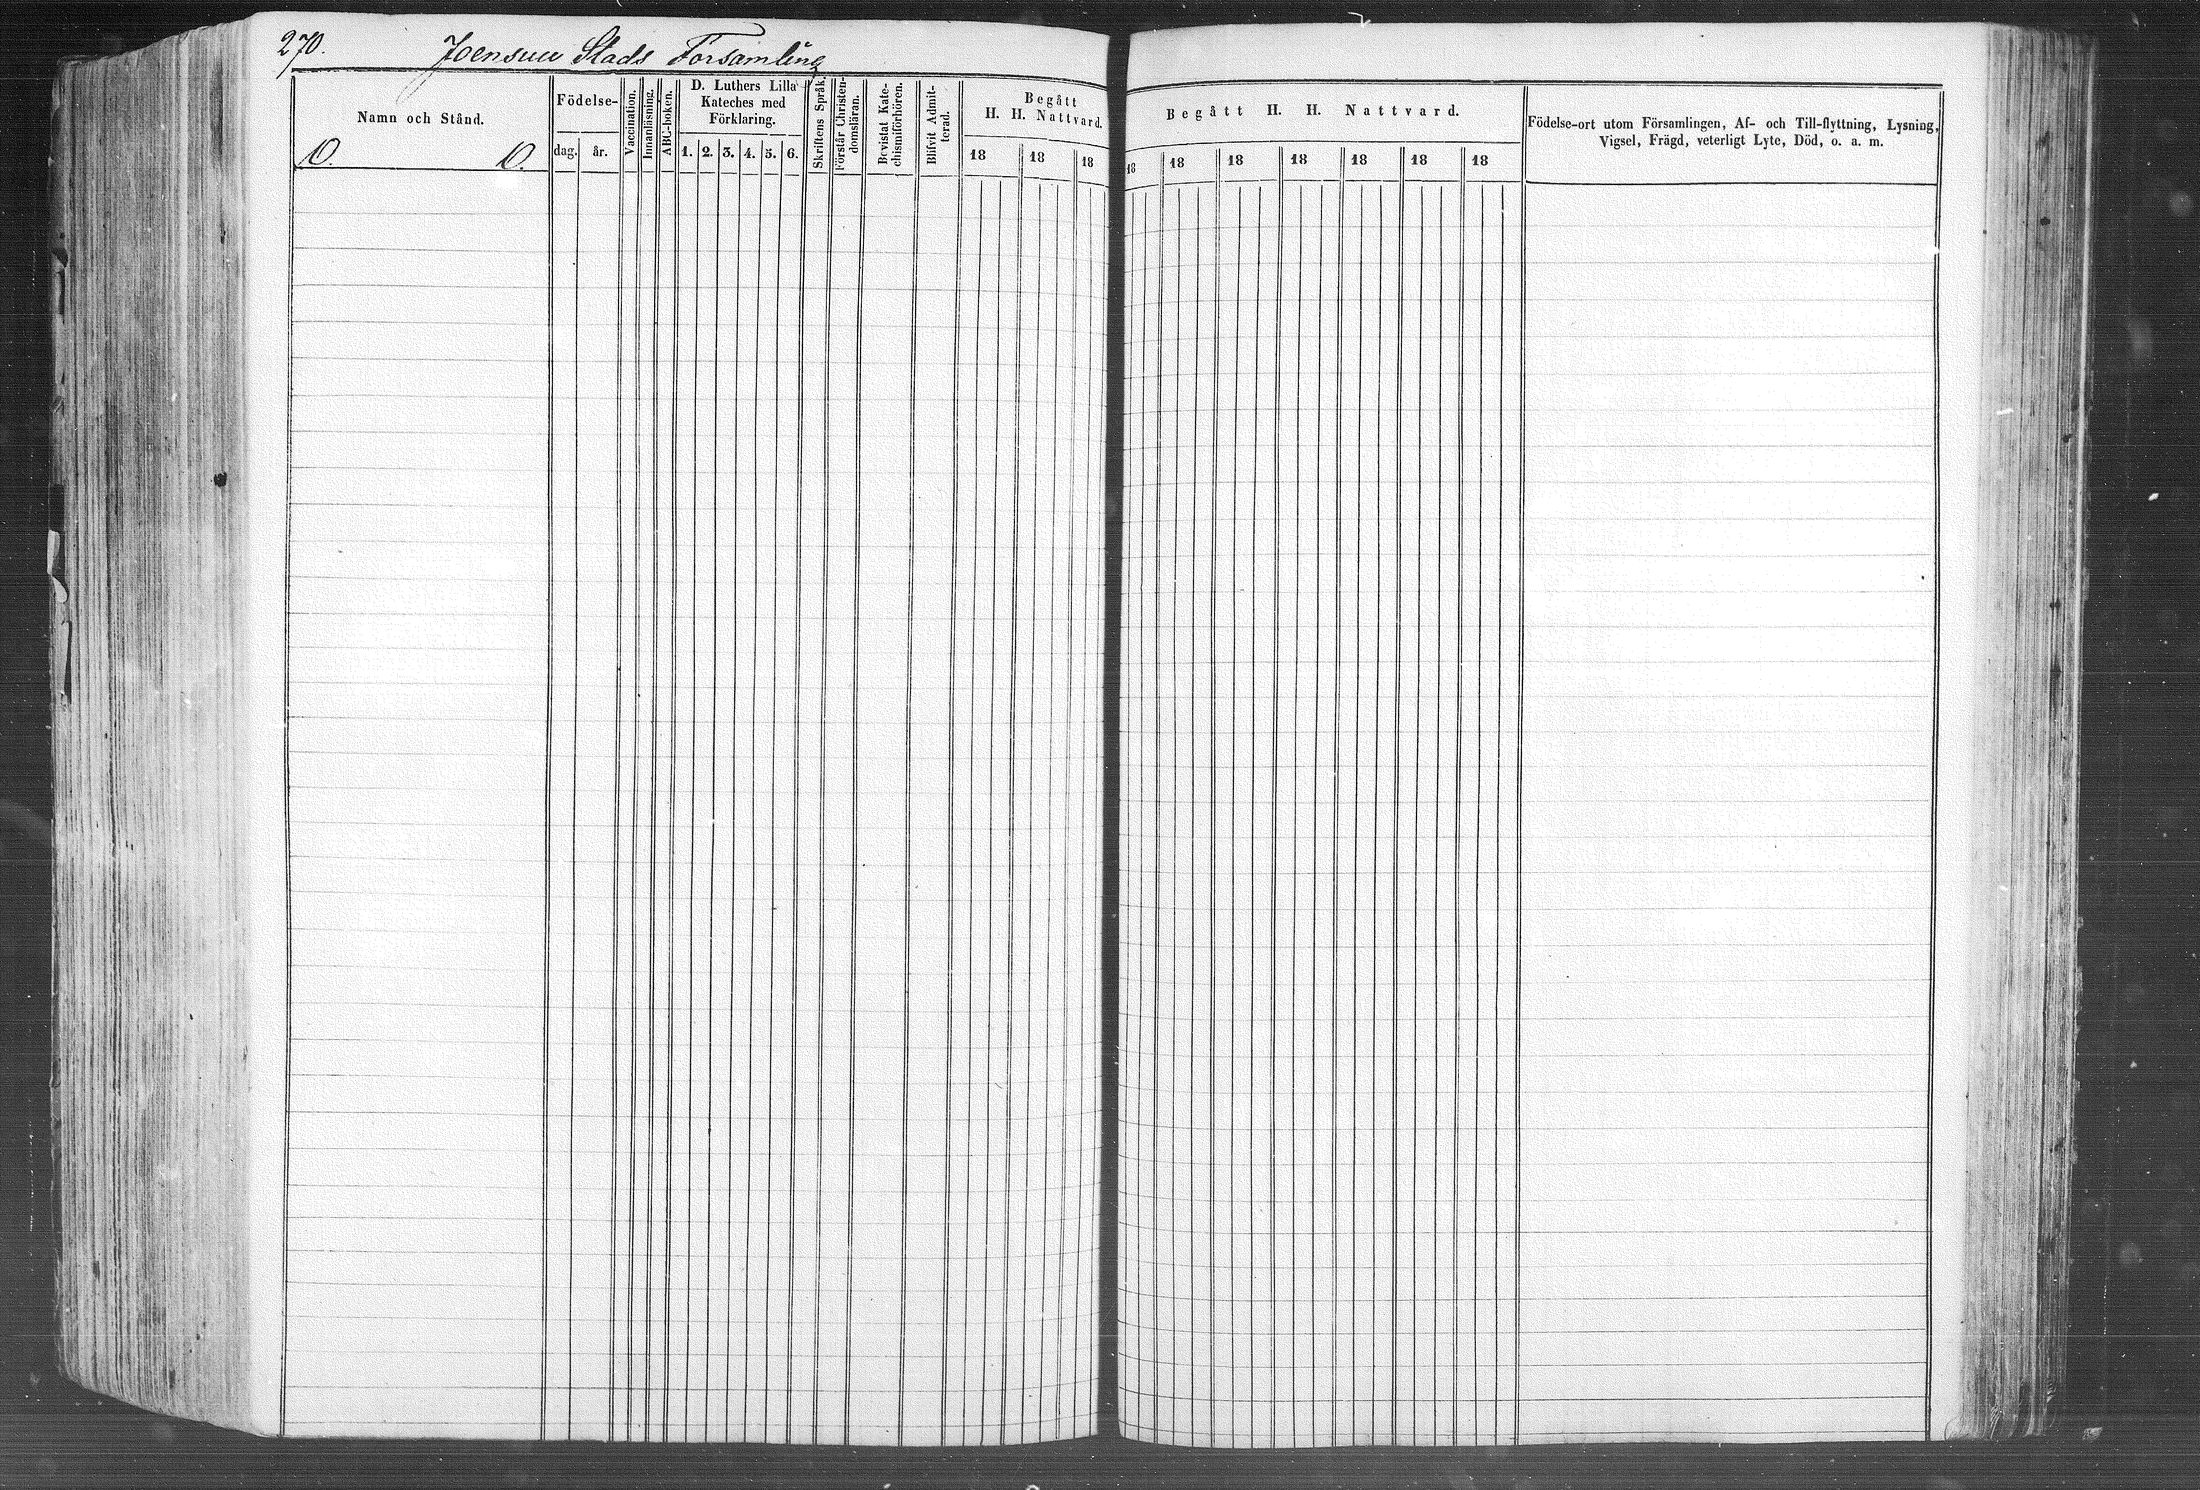 270. Joensuu Stads Församling
Namn och Stånd.
O. O.
Födelse-
dag. år.
Vaccination.
Innanläsning.
ABC-boken.
D. Luthers Lilla
Kateches med
Förklaring.
1. 2. 3. 4. 5. 6.
Skriftens Språk.
Förstår Christen-
domsläran.
Bevistat Kate-
chismiförhören.
Blifvit Admit-
terad.
Begått
H. H. Nattvard.
18 18 18
Begått H. H. Nattvard.
18 18 18 18 18 18 18
Födelse-ort utom Församlingen, Af- och Till-flyttning, Lysning,
Vigsel, Frägd, veterligt Lyte, Död, o. a. m.